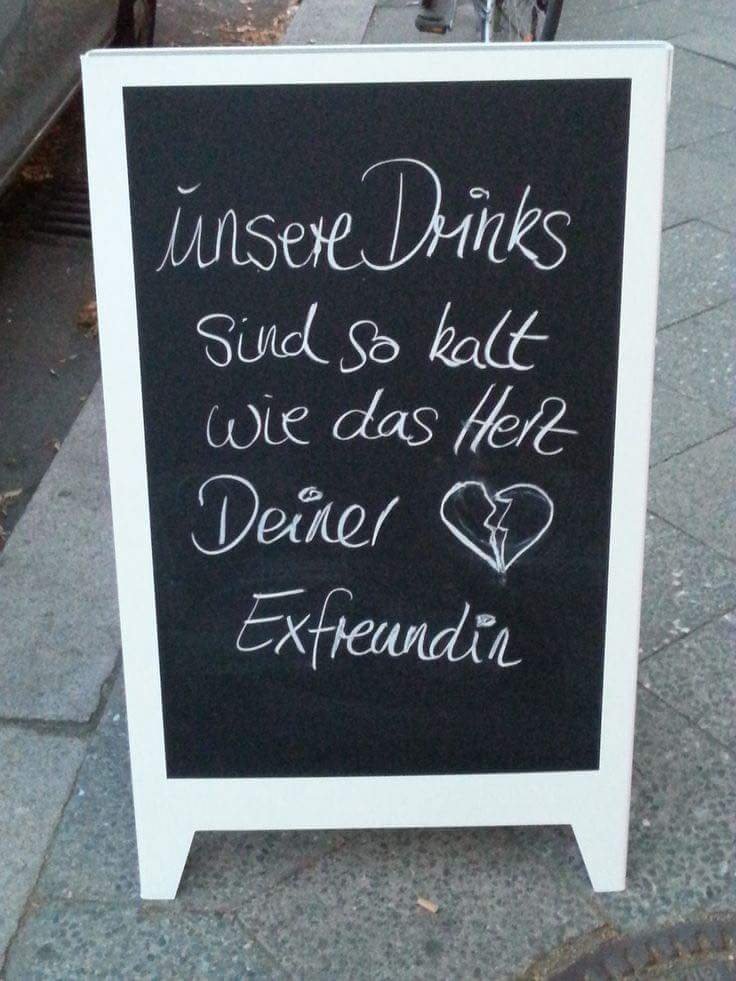 unsere Drinks
sind so kalt
wie das Herz
Deiner
Exfreundin